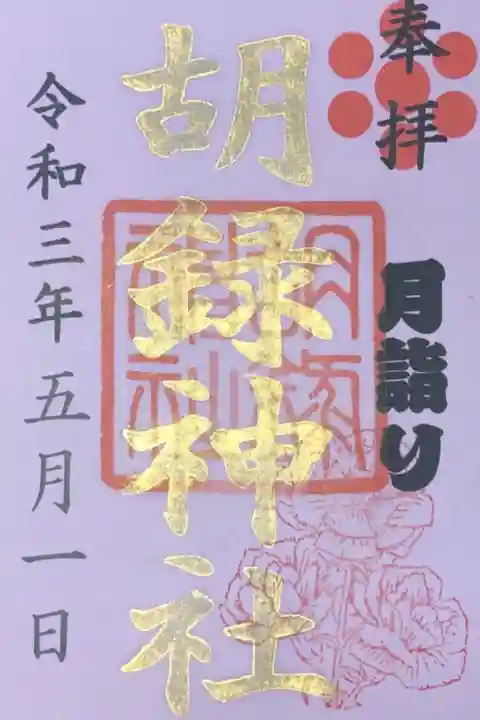 奉拝
月詣り
胡録神社
令和三年五月一日